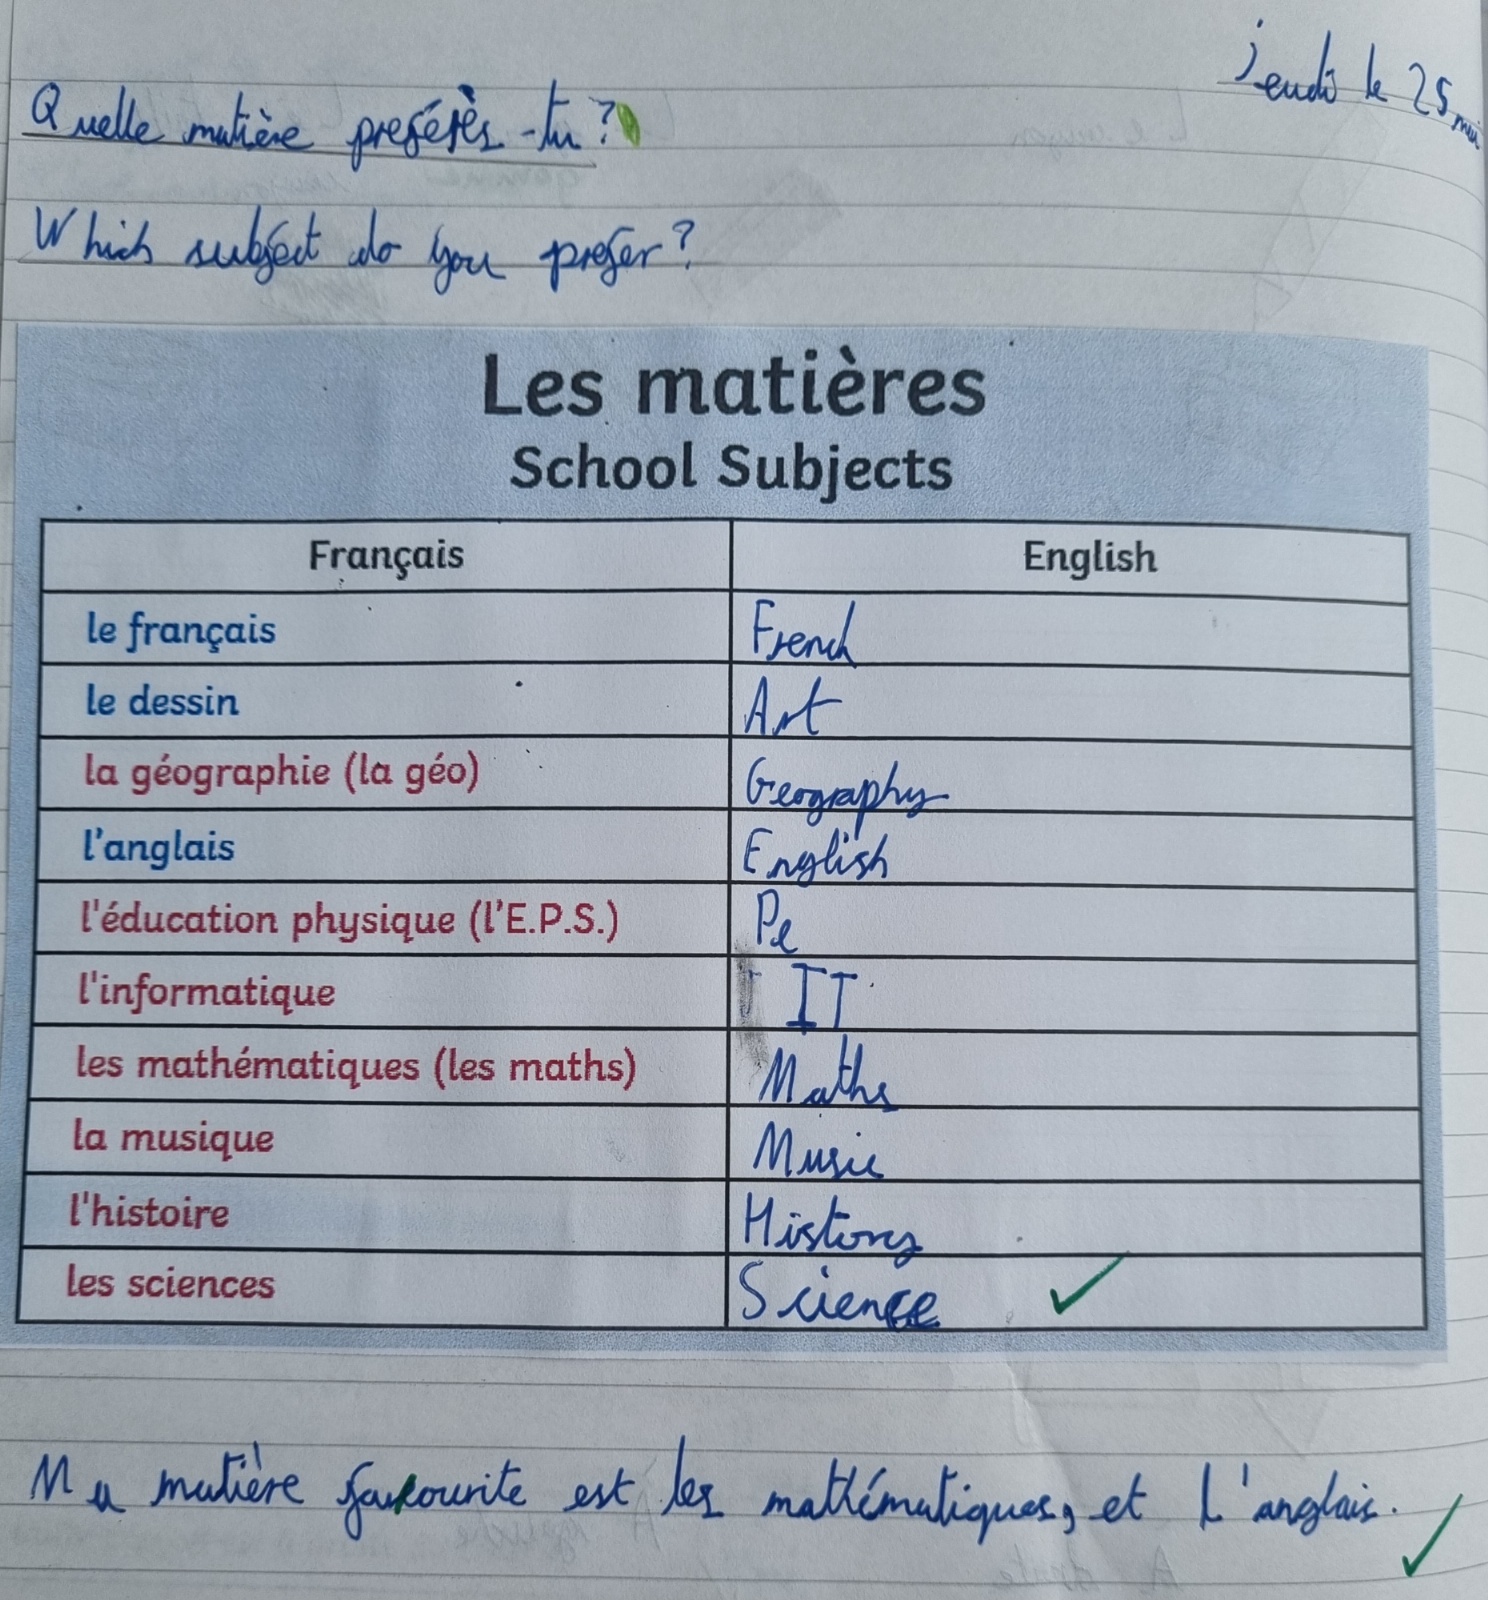 jeudi le 25 mai
Quelle matière preférès-tu?
Which subject do you prefer?
Les matières
School Subjects
Français English
le français French
le dessin Art
la géographie (la géo) Geography
l'anglais English
l'éducation physique (l'E.P.S.) Pe
l'informatique IT
les mathématiques (les maths) Maths
la musique Music
l'histoire History
les sciences Science
Ma matière favourite est les mathématiques, et L'anglais.